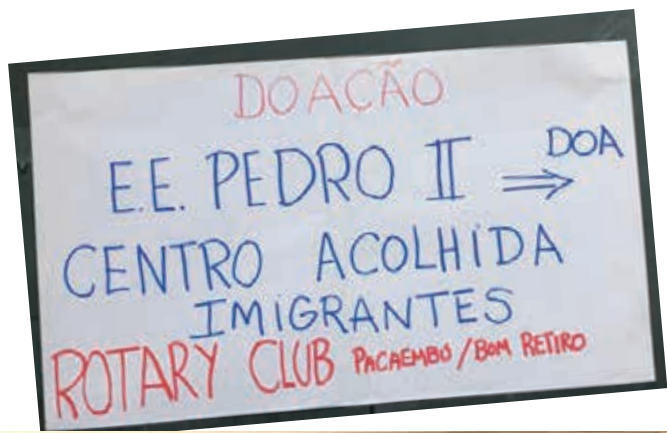 DOAÇÃO
E.E. PEDRO II ⇒ DOA
CENTRO ACOLHIDA
IMIGRANTES
ROTARY CLUB PACAEMBU / BOM RETIRO